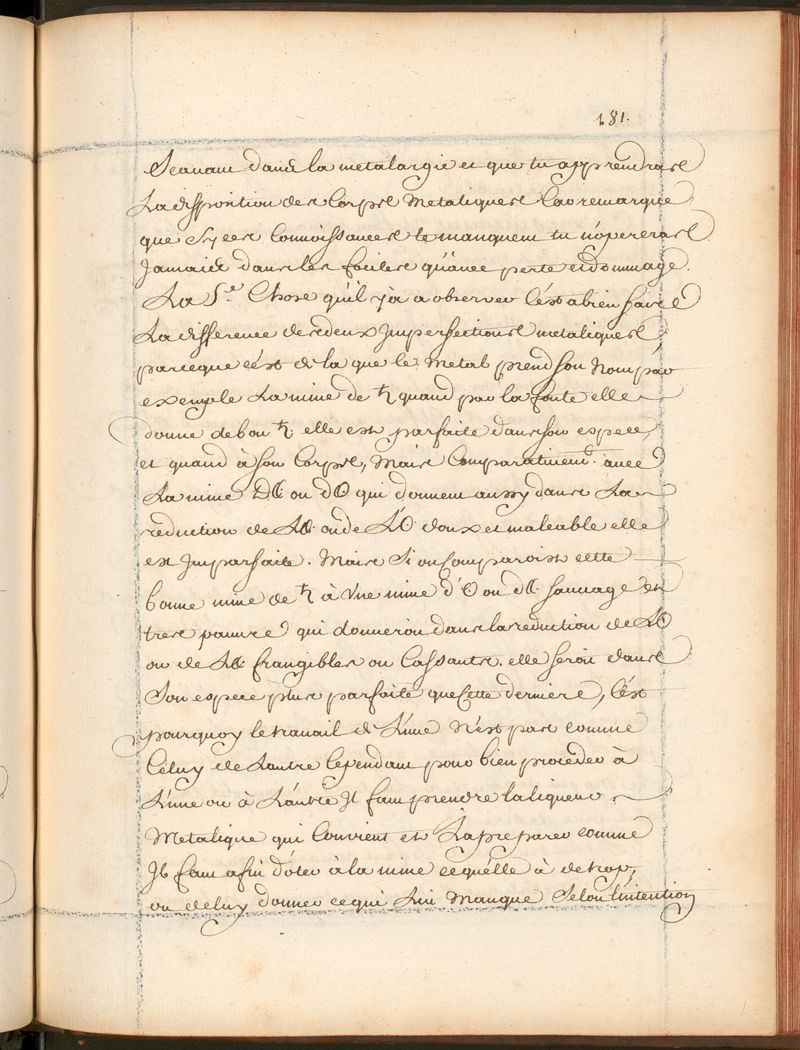 181.
Scavant dans la metalargie et que tu apprendras
La disposition des Corps Metaliques Car remarque
que Sy ces Connoissances te manquent tu n'opereras
Jamais dans les faciles qu'avec perte et dommage.
La 5.e Chose qu'il y a a observer C'est a bien faire
La difference des deux Imperfections metaliques,
parceque c'est de la que le Metal prend son Nom par
exemple La mine de ♄ quand par la fonte elle
donne de bon ♄ elle est parfaite dans son espece,
et quand à Son Corps, Mais Comparativem.t avec
La mine D☾ ou d☉ qui donnent aussy dans La
reduction de L☾ ou de L'☉ doux et maleable elle
est Imparfaite. Mais Si on Comparoist cette
bonne mine de ♄ à Vne mine d'☉ ou d☾ sauvage et
tres pauvre qui donneroit dans la reduction de L☉
ou de L☾ frangibles ou Cassants. elle seroit dans
Son espece plus parfaite que Cette derniere, C'est
pourquoy le travail de L'une N'est pas comme
Celuy de Lautre Cependant pour bien proceder à
L'une ou à L'autre Il faut prendre la liqueur
Metalique qui Convient et La preparer comme
Il faut afin d'oter à la mine ce qu'elle à de trop,
ou de luy donner ce qui Lui Manque Selon l'intention